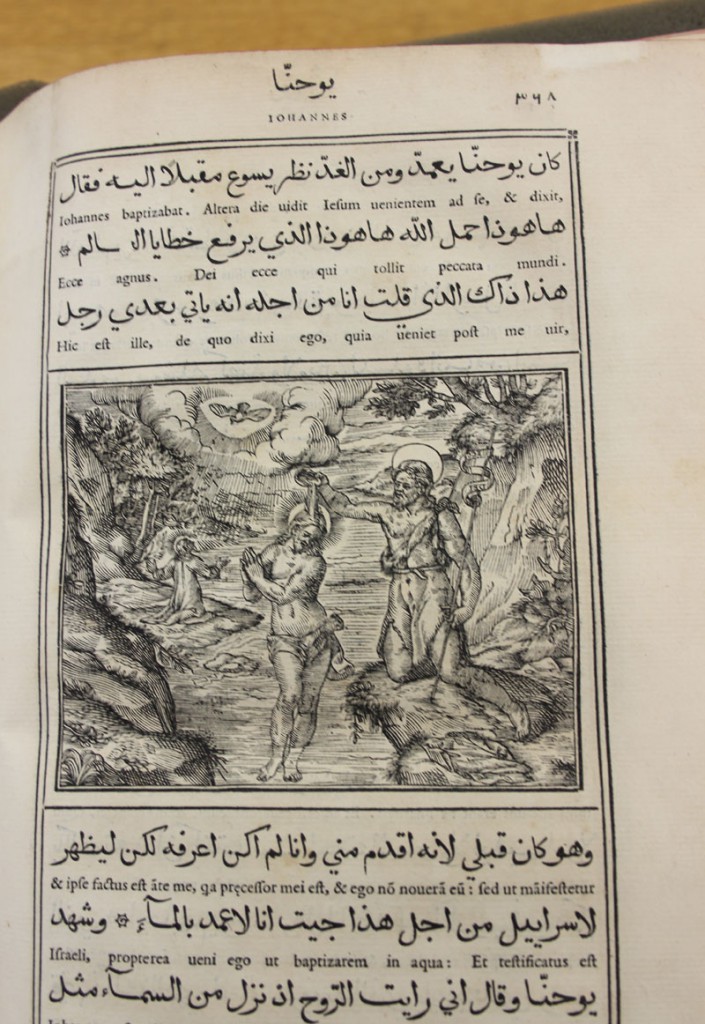 يوحنّا
٣٦٨
IOHANNES
كان يوحنّا يعمدّ ومن الغدّ نظر يسوع مقبلا اليه فقال
Iohannes baptizabat. Altera die uidit Iesum uenientem ad ſe, & dixit,
هاهوذا حمل الله هاهوذا الذي يرفع خطايا
Ecce agnus. Dei ecce qui tollit peccata mundi.
هذا ذاك الذى قلت انا من اجله انه ياتي بعدي رجل
Hic eſt ille, de quo dixi ego, quia ueniet poſt me uir,
وهو كان قبلي لانه اقدم مني وانا لم اكن اعرفه لكن ليظهر
& ipſe factus eſt āte me, qa pręceſſor mei eſt, & ego nō nouerā eū : ſed ut māifeſtetur
لاسراييل من اجل هذا جيت انا لاعمد بالمآء ۞ وشهد
Iſraeli, propterea ueni ego ut baptizarem in aqua : Et teſtificatus eſt
يوحنّا وقال اني رايت الرّوح اذ نزل من السمآء مثل